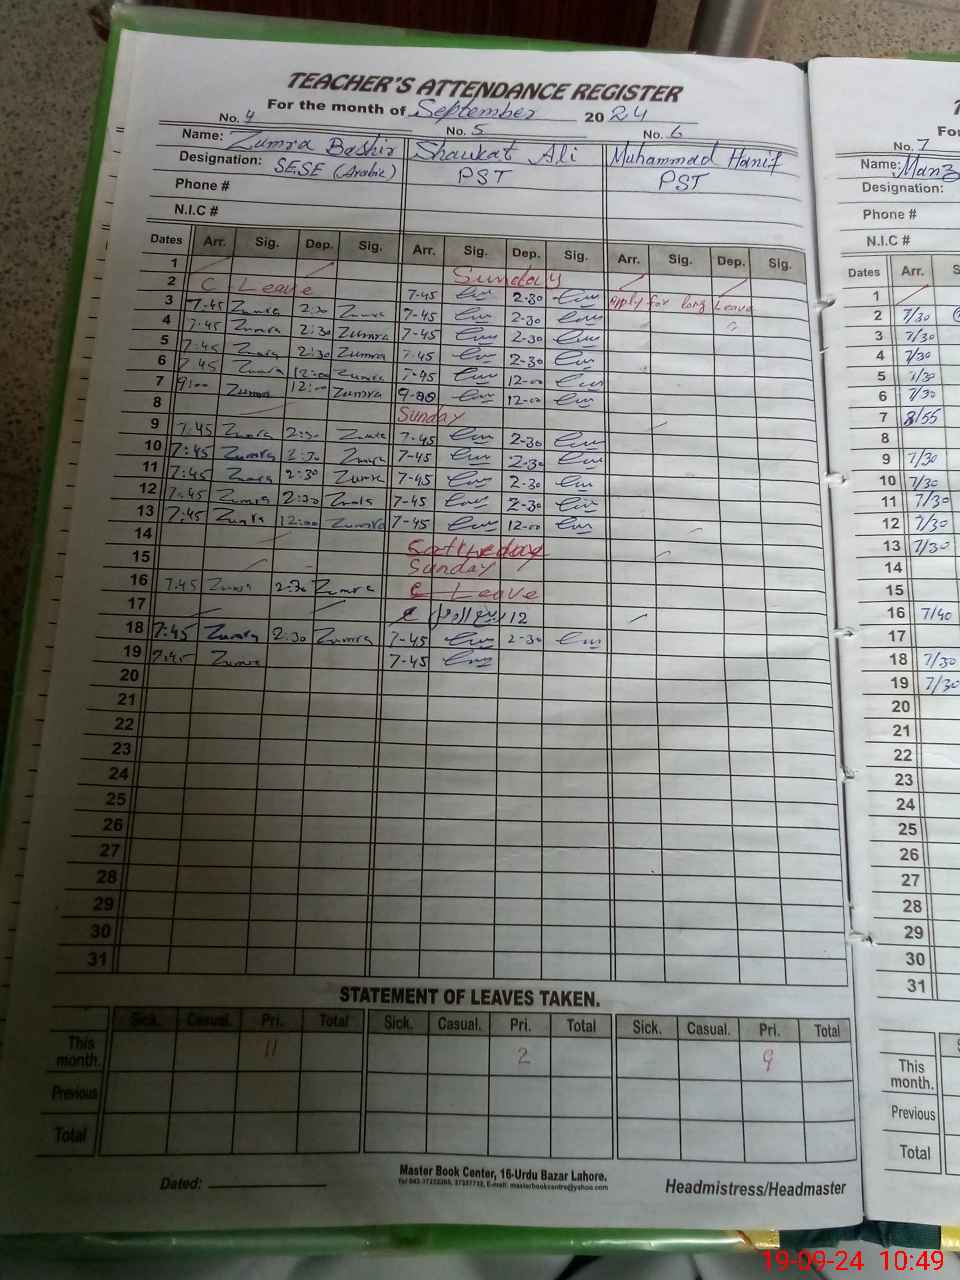 TEACHER'S ATTENDANCE REGISTER
For the month of September 2024
No. 4 No. 5 No. 6
Name: Zumra Bashir Shaukat Ali Muhammad Hanif
Designation: SESE (Arabic) PST PST
Phone #
N.I.C #
Dates Arr. Sig. Dep. Sig. Arr. Sig. Dep. Sig. Arr. Sig. Dep. Sig.
1 Sunday
2 C Leave 7-45 2-30 Apply for long Leave
3 7-45 Zumra 2:30 Zumra 7-45 2-30
4 7-45 Zumra 2:30 Zumra 7-45 2-30
5 7:45 Zumra 2:30 Zumra 7-45 2-30
6 7:45 Zumra 12:00 Zumra 7-45 12-00
7 9:00 Zumra 12:00 Zumra 9-00 12-00
8 Sunday
9 7:45 Zumra 2:30 Zumra 7-45 2-30
10 7:45 Zumra 2:30 Zumra 7-45 2-30
11 7:45 Zumra 2:30 Zumra 7-45 2-30
12 7:45 Zumra 2:30 Zumra 7-45 2-30
13 7:45 Zumra 12:00 Zumra 7-45 12-00
14
15 Sunday
16 7:45 Zumra 2:30 Zumra C Leave
17 12 ربیع الاول
18 7:45 Zumra 2:30 Zumra 7-45 2-30
19 7:45 Zumra 7-45
20
21
22
23
24
25
26
27
28
29
30
31
STATEMENT OF LEAVES TAKEN.
Sick. Casual. Pri. Total Sick. Casual. Pri. Total Sick. Casual. Pri. Total
This month. 11 2 9
Previous
Total
Dated:
Master Book Center, 16-Urdu Bazar Lahore.
Headmistress/Headmaster
No. 7
Name:
Designation:
Phone #
N.I.C #
Dates Arr.
1
2 7/30
3 7/30
4 7/30
5 7/30
6 7/30
7 8/55
8
9 7/30
10 7/30
11 7/30
12 7/30
13 7/30
14
15
16 7/40
17
18 7/30
19 7/30
20
21
22
23
24
25
26
27
28
29
30
31
This month.
Previous
Total
19-09-24 10:49